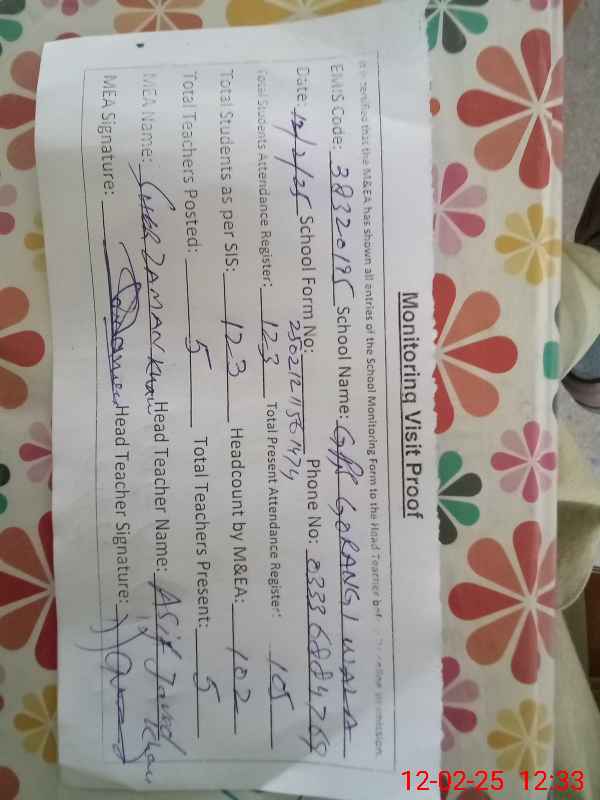 Monitoring Visit Proof
It is certified that the M&EA has shown all entries of the School Monitoring Form to the Head Teacher before online submission.
EMIS Code: 38320195 School Name: GPS GORANGI WALA
Date: 12/2/25 School Form No: Phone No: 03336884769
Total Students Attendance Register: 123 Total Present Attendance Register: 105
Total Students as per SIS: 123 Headcount by M&EA: 102
Total Teachers Posted: 5 Total Teachers Present: 5
MEA Name: SHER ZAMAN Khan Head Teacher Name: Asif Javed Khan
MEA Signature: Head Teacher Signature:
12-02-25 12:33